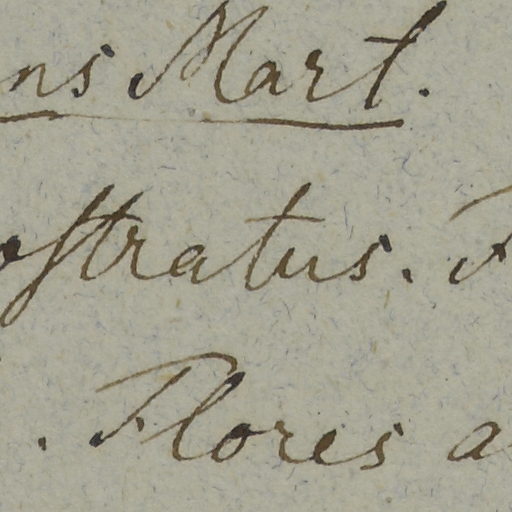 ns Mart.
oſtratus. F
. Flores a